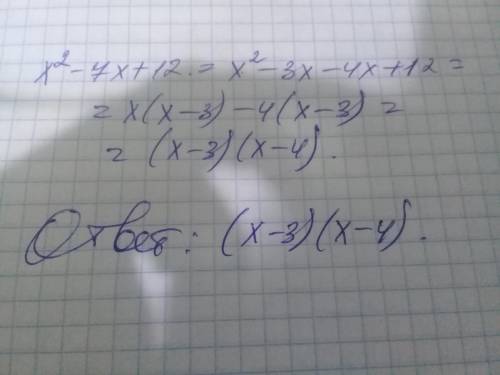 x² - 7x + 12. = x² - 3x - 4x + 12 =
= x(x - 3) - 4(x - 3) =
= (x - 3)(x - 4).
Ответ: (x - 3)(x - 4).